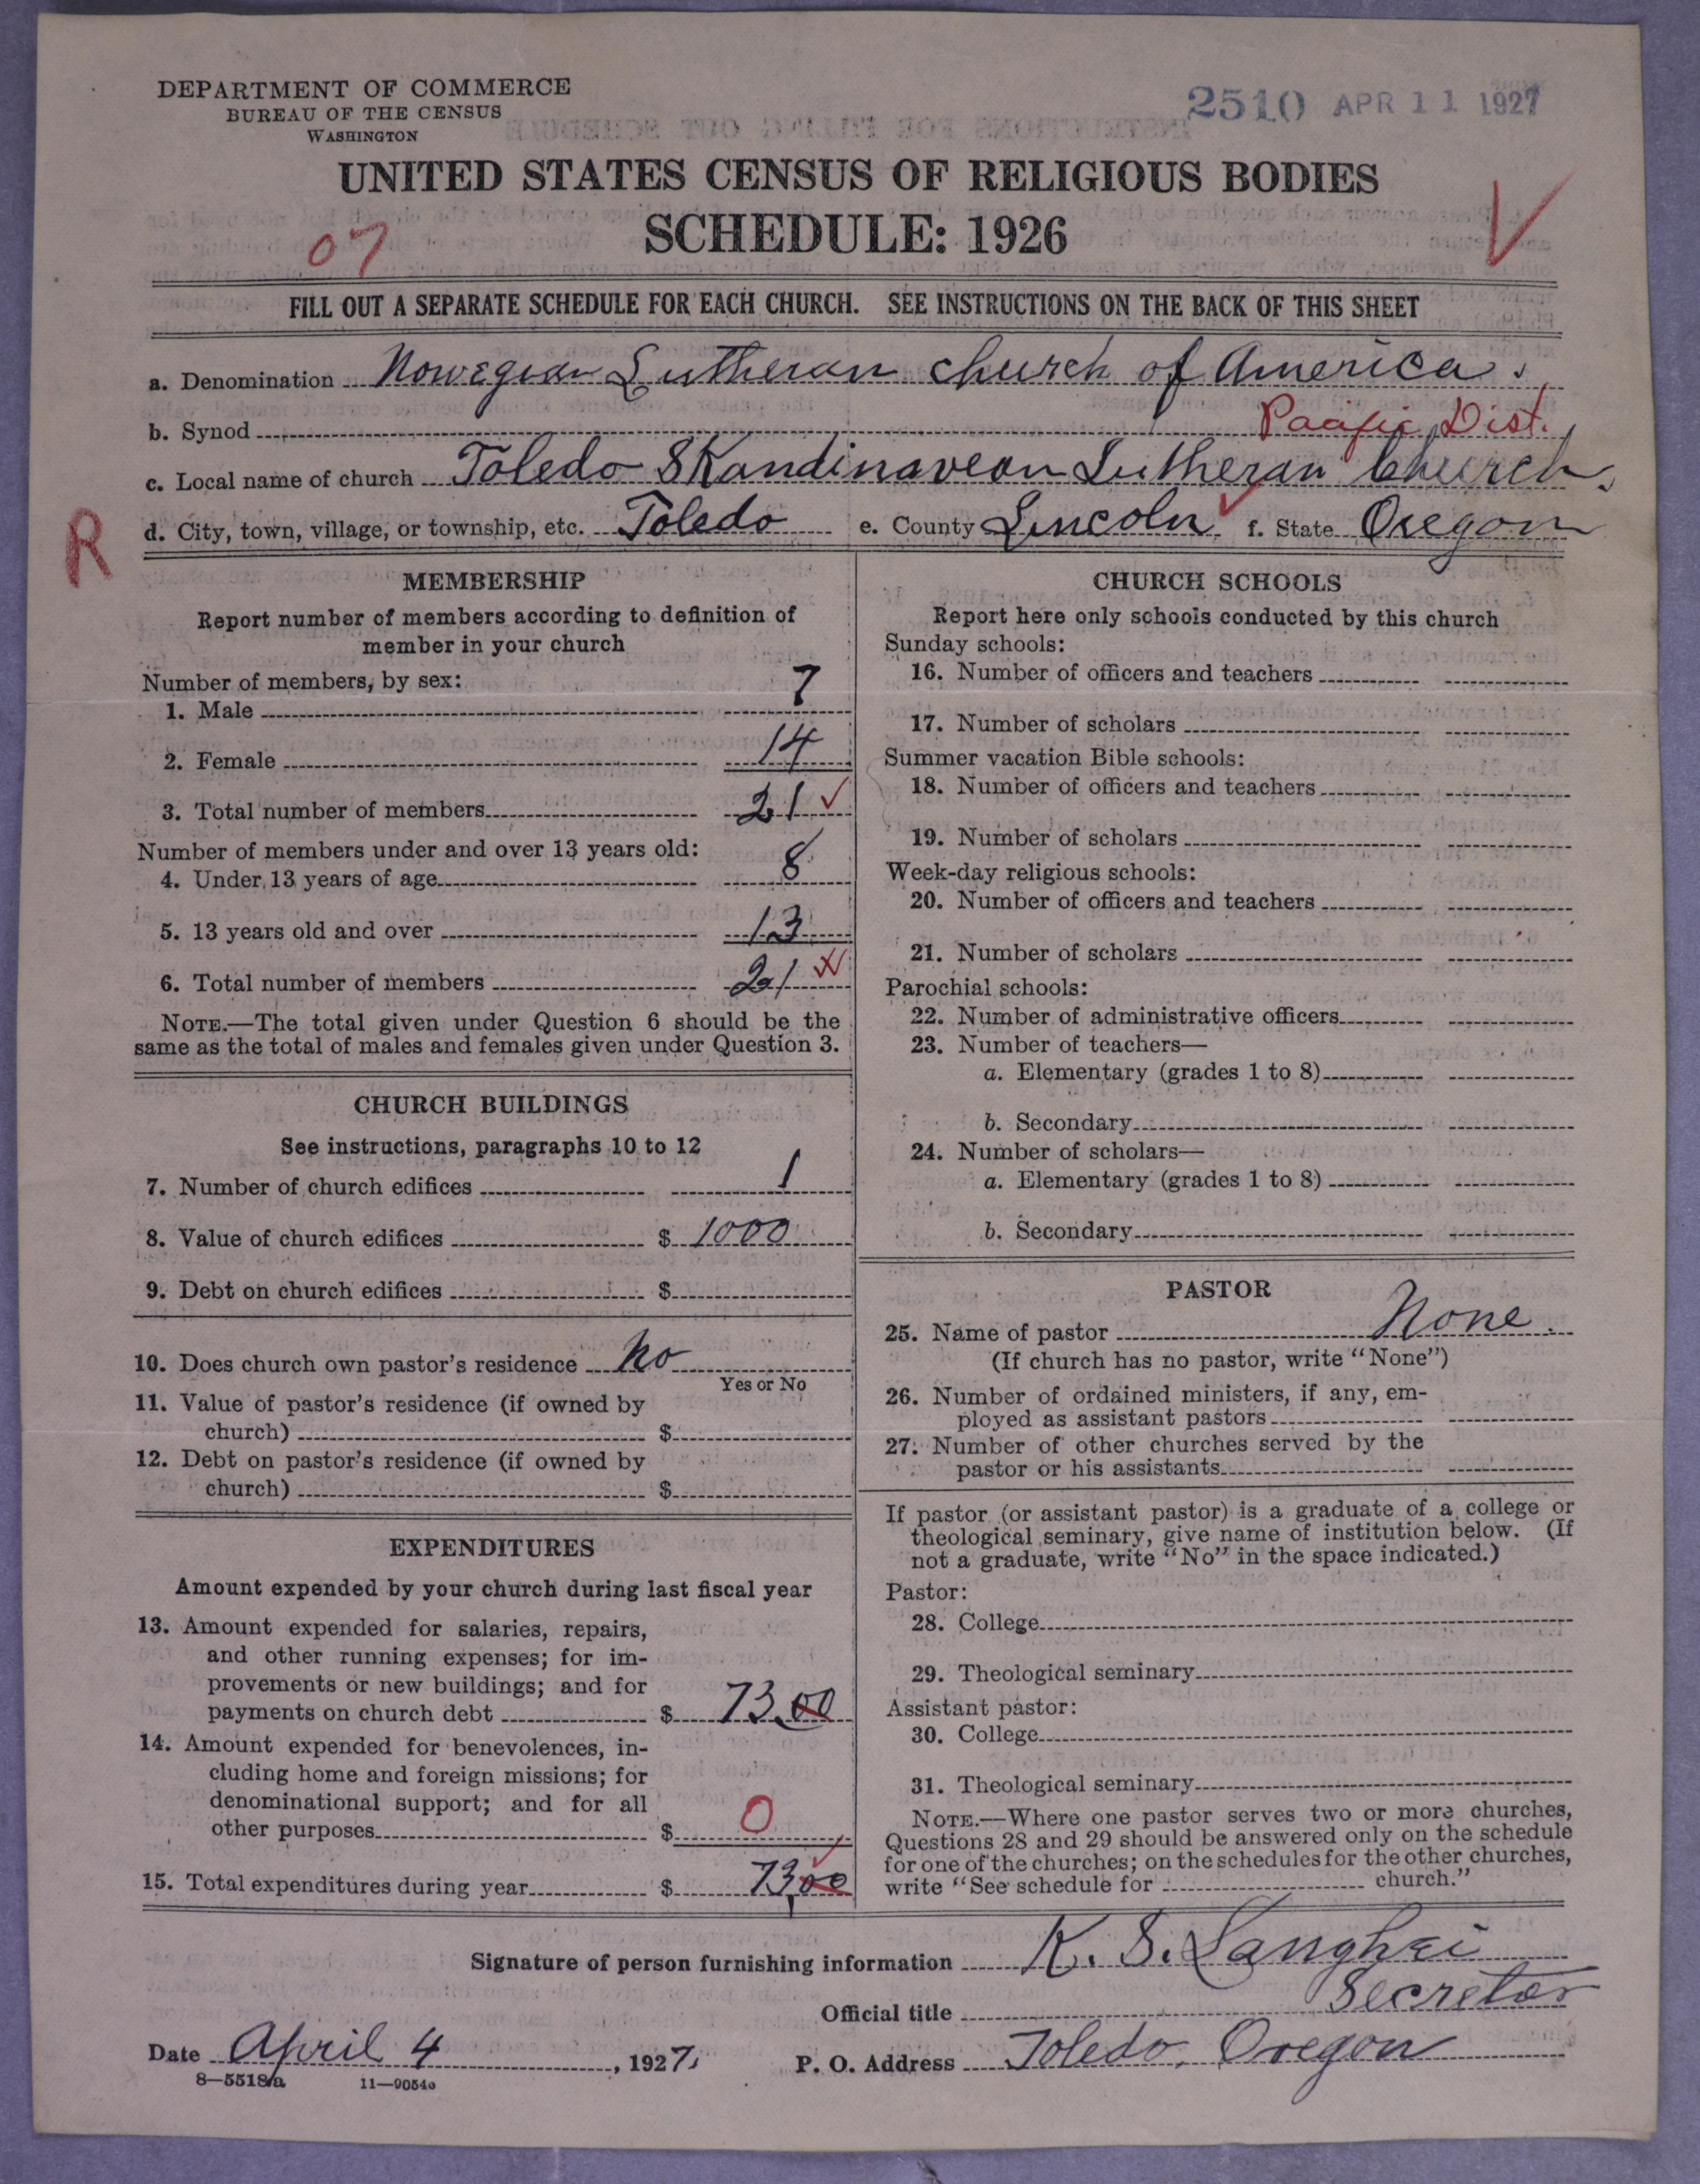 DEPARTMENT OF COMMERCE
BUREAU OF THE CENSUS
WASHINGTON
2510 APR 11 1927
UNITED STATES CENSUS OF RELIGIOUS BODIES
SCHEDULE: 1926
07
V
FILL OUT A SEPARATE SCHEDULE FOR EACH CHURCH. SEE INSTRUCTIONS ON THE BACK OF THIS SHEET
a. Denomination Nowegian Lutheran church of America.
b. Synod Pacific Dist.
c. Local name of church Toledo Skandinavean Lutheran Church.
R
d. City, town, village, or township, etc. Toledo e. County Lincoln f. State Oregon
MEMBERSHIP
Report number of members according to definition of
member in your church
Number of members, by sex:
1. Male 7
2. Female 14
3. Total number of members 21 ✓
Number of members under and over 13 years old:
4. Under 13 years of age 8
5. 13 years old and over 13
6. Total number of members 21
NOTE.—The total given under Question 6 should be the
same as the total of males and females given under Question 3.
CHURCH BUILDINGS
See instructions, paragraphs 10 to 12
7. Number of church edifices 1
8. Value of church edifices $ 1000
9. Debt on church edifices $
10. Does church own pastor's residence No
Yes or No
11. Value of pastor's residence (if owned by
church) $
12. Debt on pastor's residence (if owned by
church) $
EXPENDITURES
Amount expended by your church during last fiscal year
13. Amount expended for salaries, repairs,
and other running expenses; for im-
provements or new buildings; and for
payments on church debt $ 73.00
14. Amount expended for benevolences, in-
cluding home and foreign missions; for
denominational support; and for all
other purposes $ 0
15. Total expenditures during year $ 73,00
CHURCH SCHOOLS
Report here only schools conducted by this church
Sunday schools:
16. Number of officers and teachers
17. Number of scholars
Summer vacation Bible schools:
18. Number of officers and teachers
19. Number of scholars
Week-day religious schools:
20. Number of officers and teachers
21. Number of scholars
Parochial schools:
22. Number of administrative officers
23. Number of teachers—
a. Elementary (grades 1 to 8)
b. Secondary
24. Number of scholars—
a. Elementary (grades 1 to 8)
b. Secondary
PASTOR
25. Name of pastor None.
(If church has no pastor, write "None")
26. Number of ordained ministers, if any, em-
ployed as assistant pastors
27. Number of other churches served by the
pastor or his assistants
If pastor (or assistant pastor) is a graduate of a college or
theological seminary, give name of institution below. (If
not a graduate, write "No" in the space indicated.)
Pastor:
28. College
29. Theological seminary
Assistant pastor:
30. College
31. Theological seminary
NOTE.—Where one pastor serves two or more churches,
Questions 28 and 29 should be answered only on the schedule
for one of the churches; on the schedules for the other churches,
write "See schedule for church."
Signature of person furnishing information K. S. Langhei
Official title Secretar
Date April 4, 1927. P. O. Address Toledo, Oregon
8—5518a 11—9054a